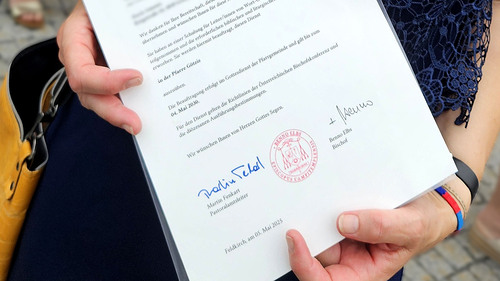 wir danken Ihnen für Ihre Bereitschaft, diesen
übernehmen und wünschen Ihnen für diese
Sie haben an einer Schulung für Leiter/innen von Wort-
teilgenommen und die erforderlichen biblischen und liturgischen
erworben. Sie werden hiermit beauftragt, diesen Dienst
in der Pfarre Götzis
auszuüben.
Die Beauftragung erfolgt im Gottesdienst der Pfarrgemeinde und gilt bis zum
04. Mai 2030.
Für den Dienst gelten die Richtlinien der Österreichischen Bischofskonferenz und
die diözesanen Ausführungsbestimmungen.
Wir wünschen Ihnen von Herzen Gottes Segen
+ Benno
Benno Elbs
Bischof
BENNO ELBS
Martin Fenkart
Pastoralamtsleiter
Feldkirch, am 05. Mai 2025